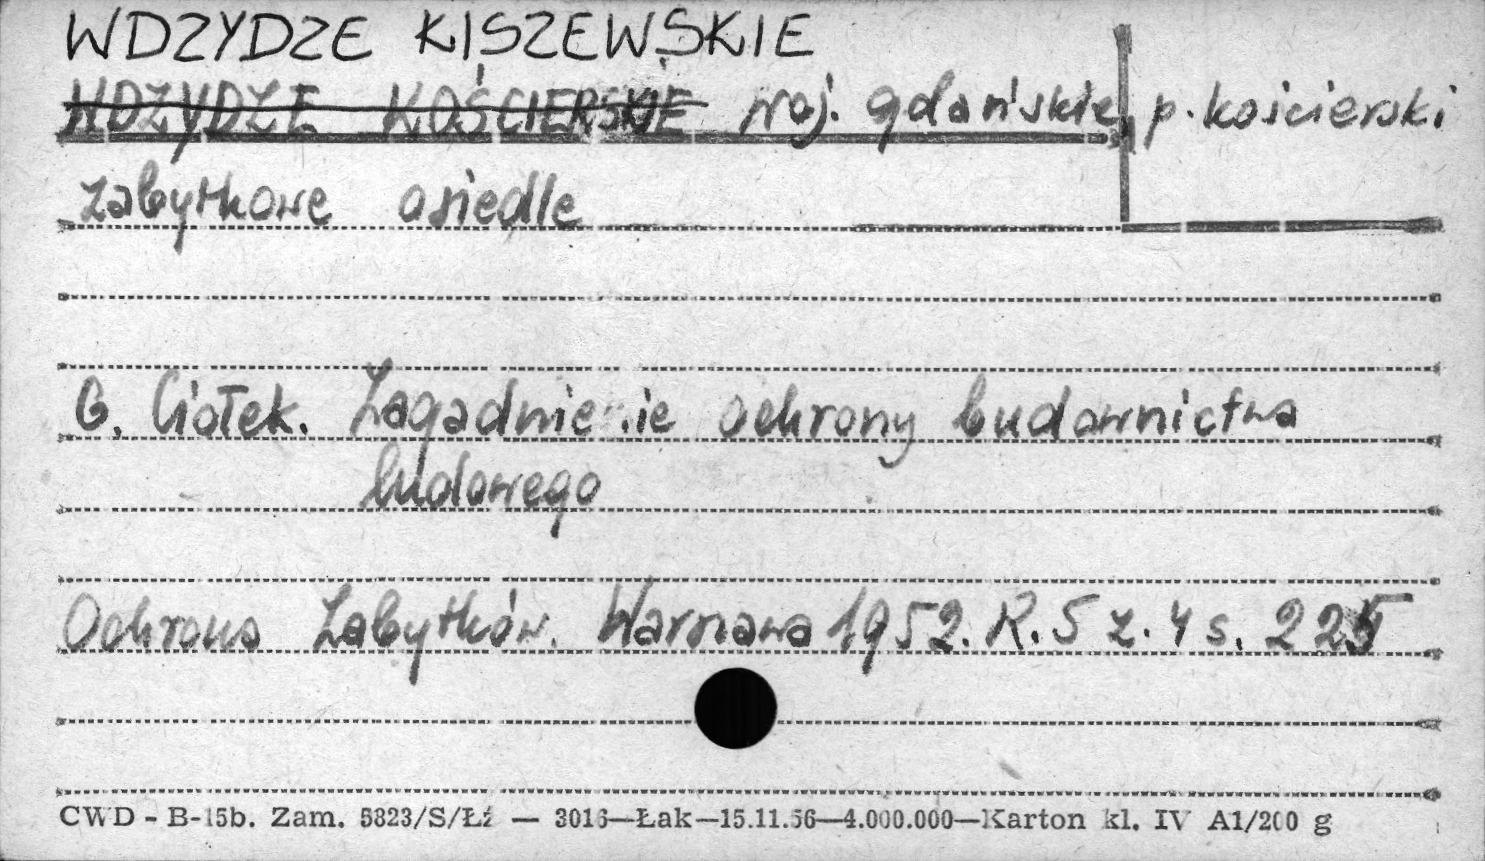 WDZYDZE KISZEWSKIE
WDZYDZE KOŚCIERSKIE woj. gdańskie p. kościerski
zabytkowe osiedle
G. Ciołek. Zagadnienie ochrony budownictwa
ludowego
Ochrona Zabytków. Warszawa 1952. R. 5 z. 4 s. 225
CWD - B-15b. Zam. 5823/S/Łź — 3016—Łak—15.11.56—4.000.000—Karton kl. IV A1/200 g